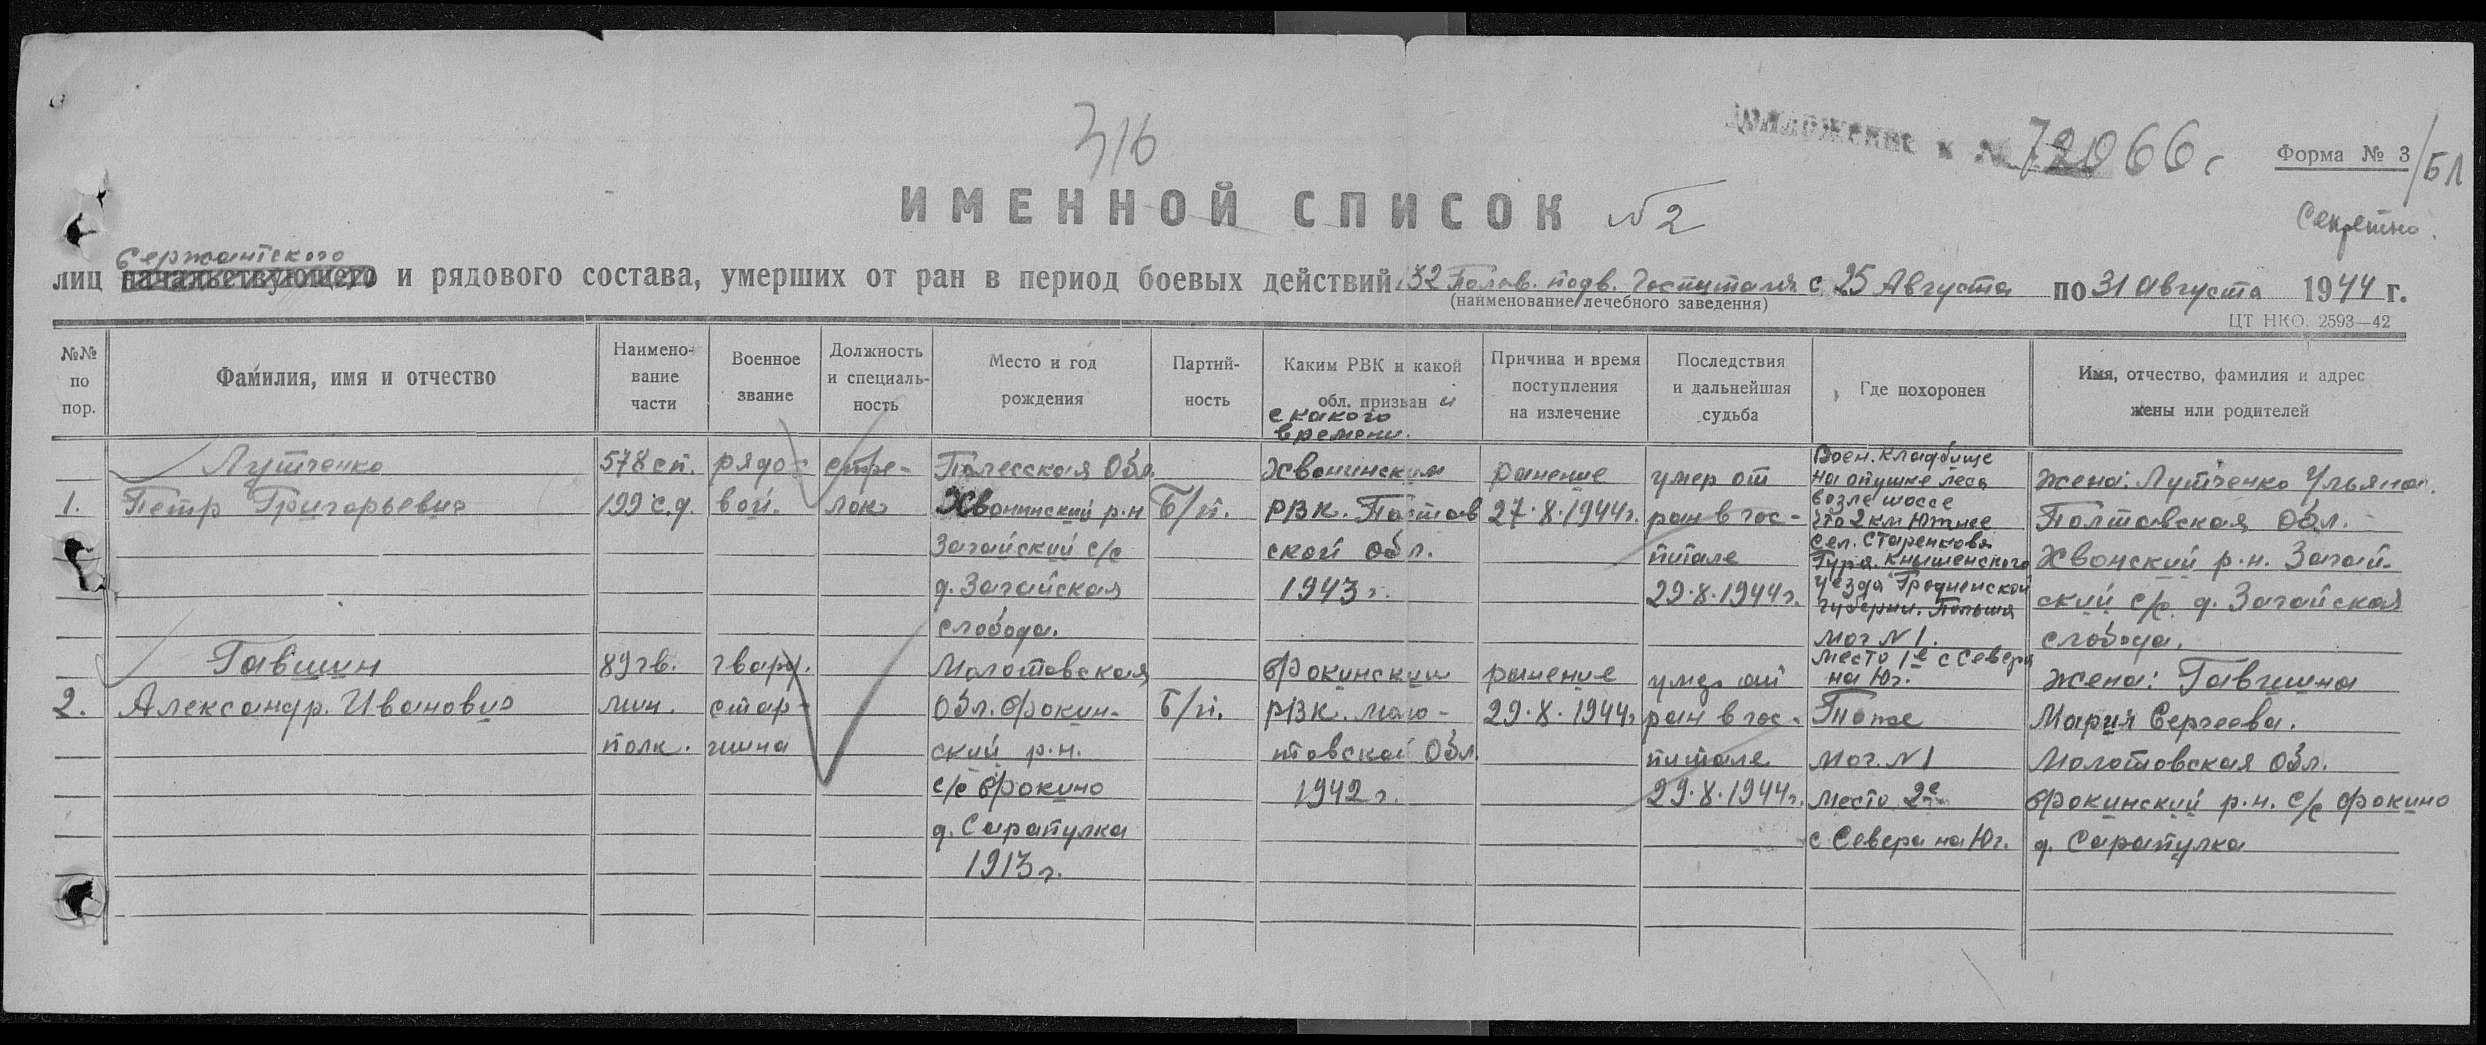 316
Приложение к № 72066с
Форма № 3/БЛ
Секретно.
ИМЕННОЙ СПИСОК №2
Сержантского
лиц начальствующего и рядового состава, умерших от ран в период боевых действий 32 Полев. подв. Госпиталя с 25 Августа по 31 августа 1944 г.
(наименование лечебного заведения)
ЦТ НКО. 2593—42
№№ по пор.
Фамилия, имя и отчество
Наименование части
Военное звание
Должность и специальность
Место и год рождения
Партийность
Каким РВК и какой обл. призван и с какого времени.
Причина и время поступления на излечение
Последствия и дальнейшая судьба
Где похоронен
Имя, отчество, фамилия и адрес жены или родителей
1.
Лутченко
Петр Григорьевич
578 сп.
199 с.д.
рядо-
вой.
стре-
лок
Полесская Обл.
Хвонинский р-н
Загайский с/с
д. Загайская
слобода.
Б/п.
Хвонинским
РВК. Полтав
ской обл.
1943 г.
ранение
27.8.1944г.
умер от
ран в гос-
питале
29.8.1944г.
Воен. кладбище
на опушке леса
возле шоссе
что 2 км Южнее
сел. Старенковя
Гура. Кнышенского
уезда Гродненской
губерни. Польша
мог №1.
место 1е с Севера
на Юг.
Жена: Лутченко Ульяна.
Полтавская обл.
Хвонский р.н. Загай-
ский с/с д. Загайская
слобода.
2.
Гавшин
Александр. Иванович
89 гв.
мин.
полк.
гвард.
стар-
шина
Молотовская
Обл. Фокин-
ский р.н.
с/с Фокино
д. Сарапулка
1913 г.
Б/п.
Фокинским
РВК. Моло-
товской Обл.
1942 г.
ранение
29.8.1944г
умер от
ран в гос-
питале
29.8.1944г.
Тоже
мог. №1
место 2е
с Севера на Юг.
Жена: Гавшина
Мария Сергеева.
Молотовская обл.
Фокинский р.н. с/с Фокино
д. Сарапулка